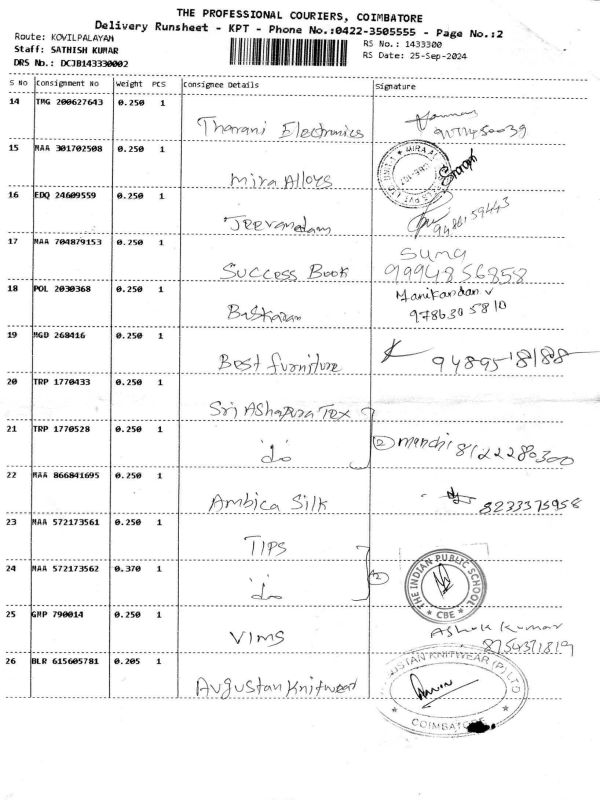 THE PROFESSIONAL COURIERS, COIMBATORE
Delivery Runsheet - KPT - Phone No.:0422-3505555 - Page No.:2
Route: KOVILPALAYAM
Staff: SATHISH KUMAR
DRS No.: DCJB143330002
RS No.: 1433300
RS Date: 25-Sep-2024
S No Consignment No Weight PCS Consignee Details Signature
14 TMG 200627643 0.250 1 Tharani Electronics
15 MAA 301702508 0.250 1 Mira Alloys
16 EDQ 24609559 0.250 1 Jeevanadam 9486159443
17 MAA 704879153 0.250 1 Success Book Suma 9994856858
18 POL 2030368 0.250 1 Baskaran Manikandan v 9786305810
19 MGD 268416 0.250 1 Best furniture 9489518188
20 TRP 1770433 0.250 1 Sri AShapura Tex
21 TRP 1770528 0.250 1 do 2 manchi 8122280300
22 MAA 866841695 0.250 1 Ambica Silk 8233375958
23 MAA 572173561 0.250 1 TIPS
24 MAA 572173562 0.370 1 do THE INDIAN PUBLIC SCHOOL CBE
25 GMP 790014 0.250 1 VIMS AShok kumar 8754371819
26 BLR 615605781 0.205 1 Augustan Knitwear KNITWEAR (P) LTD COIMBATORE